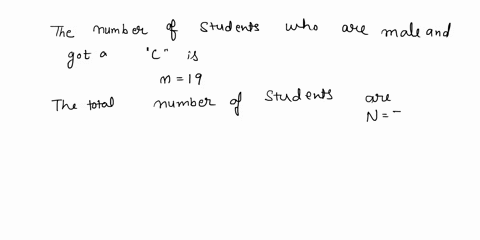 The number of students who are male and
got a "C" is
n = 19
The total number of students are
N =